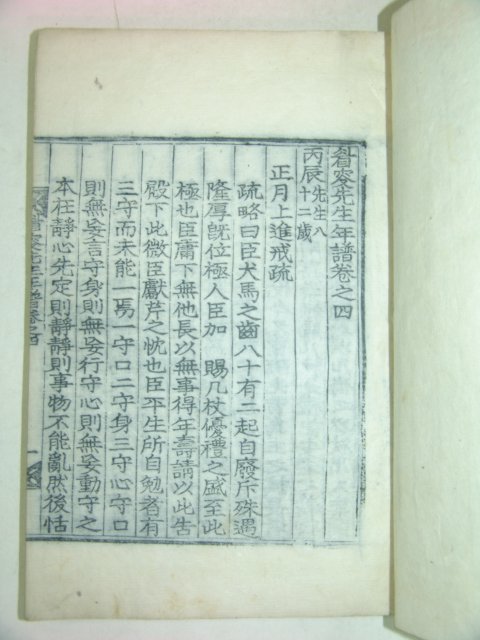 眉叟先生年譜卷之四
丙辰先生八十二歲
正月上進戒疏
疏略曰臣犬馬之齒八十有二起自廢斥殊遇
隆厚旣位極人臣加 賜几杖優禮之盛至此
極也臣庸下無他長以無事得年壽請以此告
殿下此微臣獻芹之忱也臣平生所自勉者有
三守而未能一焉一守口二守身三守心守口
則無妄言守身則無妄行守心則無妄動守之
本在靜心先定則靜靜則事物不能亂然後恬
眉叟先生年譜卷之四 一